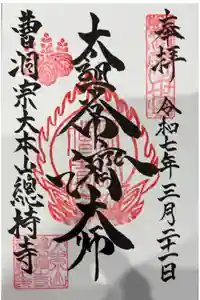 奉拝
令和七年三月二十一日
太祖常濟大师
曹洞宗大本山總持寺